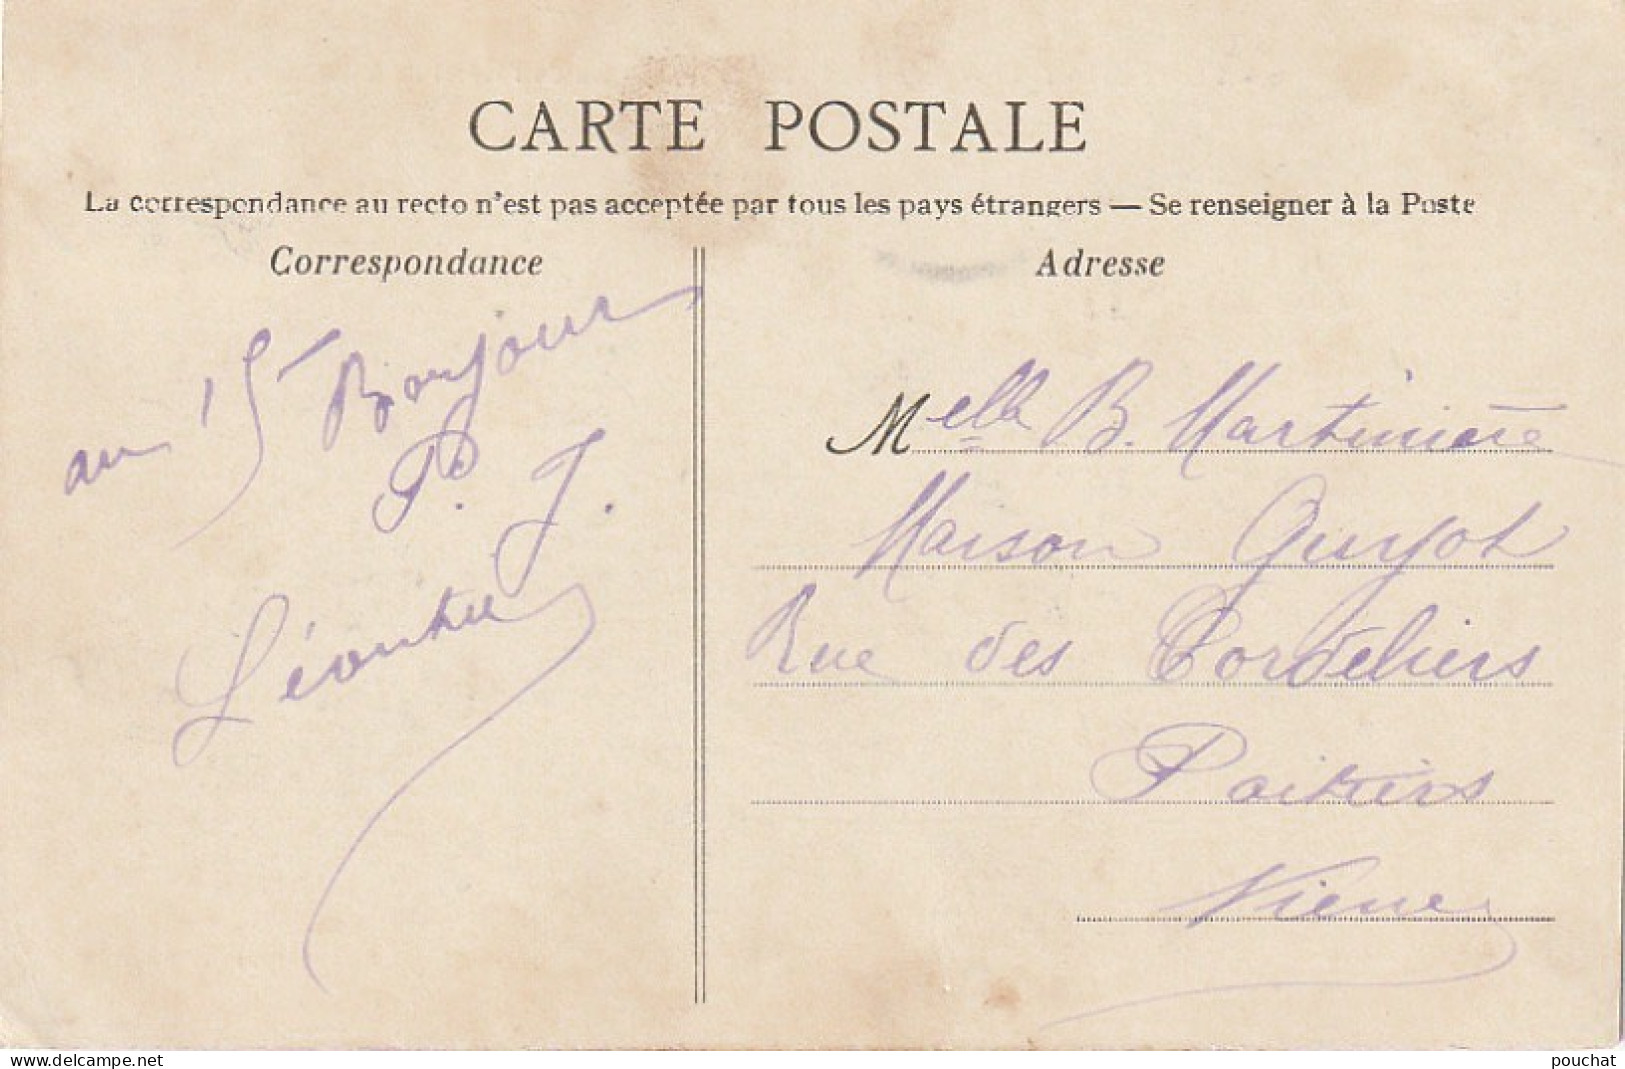 CARTE POSTALE
La correspondance au recto n'est pas acceptée par tous les pays étrangers — Se renseigner à la Poste
Correspondance
au 15 Bonjour
P. J.
Léontine
Adresse
Melle B. Martinière
Maison Guyot
Rue des Cordeliers
Poitiers
Vienne
delcampe.net
pouchat